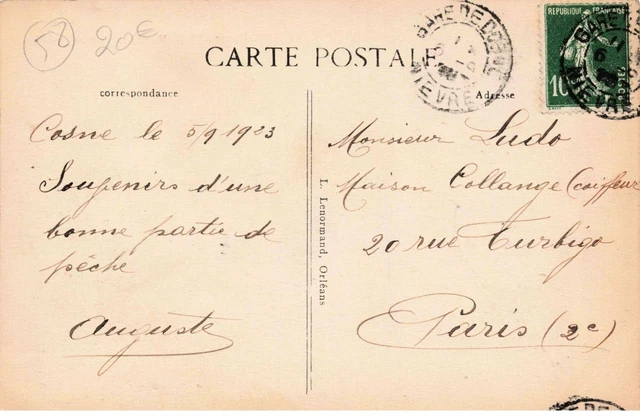 58
20€
CARTE POSTALE
GARE DE COSNE
NIÈVRE
REPUBLIQUE FRANÇAISE
10
POSTES
GARE DE
NIÈVRE
correspondance
Adresse
Cosne le 5/9 1923
Soupenirs d'une
bonne partie de
pêche
Auguste
L. Lenormand, Orléans
Monsieur Ludo
Maison Collange (coiffeur
20 rue Turbigo
Paris (2e)